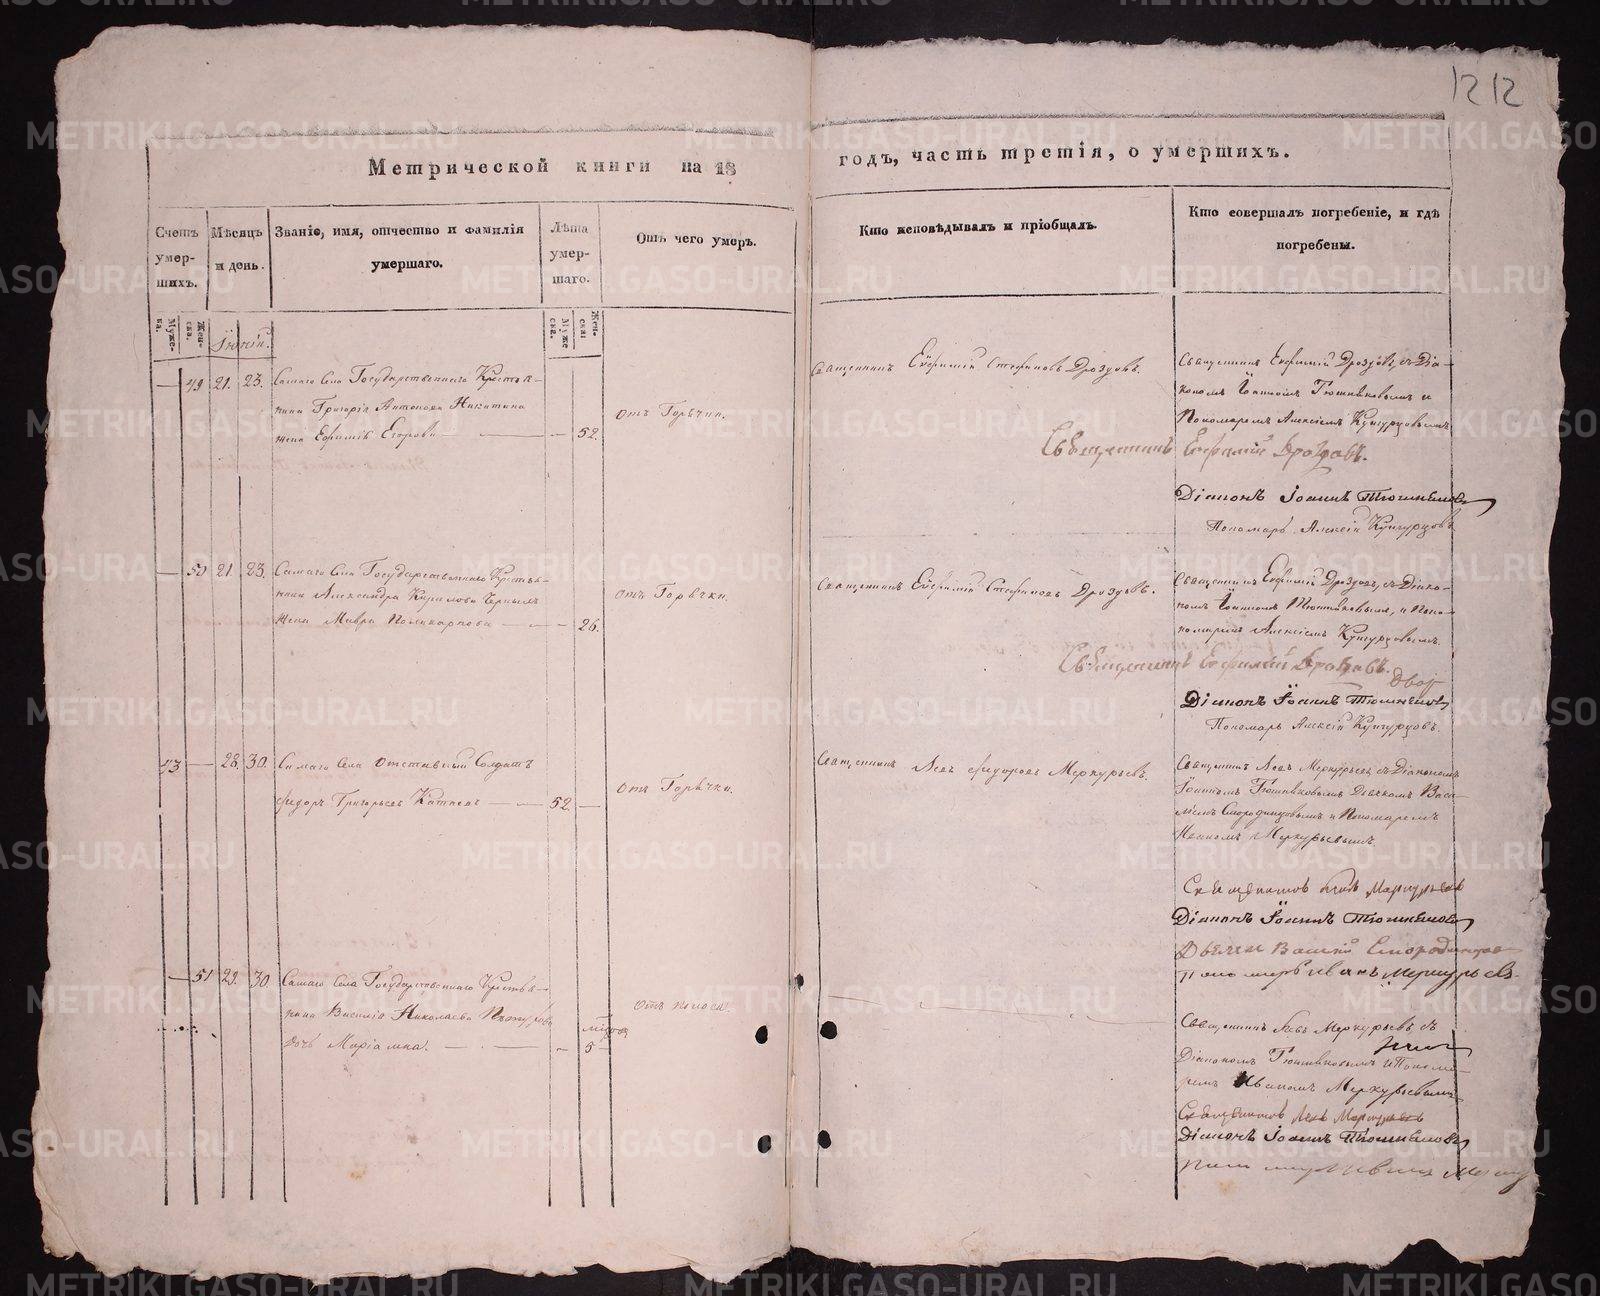 1212
Метрической книги на 18 годъ, часть третія, о умершихъ.
Счетъ умер-шихъ.
Мѣсяцъ и день.
Званіе, имя, отчество и фамилія умершаго.
Лѣта умер-шаго.
Отъ чего умеръ.
Кто исповѣдывалъ и пріобщалъ.
Кто совершалъ погребеніе, и гдѣ погребены.
Муже-ка.
Жен-ска.
Муже ска.
Жен-ска
Іюній.
— 49 21. 23. Самаго Села Государственнаго Крестья-
нина Григорія Антонова Никитина
жена Ефимія Егорова — — 52.
Отъ Горячки.
Священникъ Евфимій Стефановъ Дроздовъ.
Священникъ Евфимій Дроздовъ, съ Діа-
кономъ Іоанномъ Тюшняковымъ и
Пономаремъ Алексіемъ Кунгурцовымъ
Священникъ Евфимій Дроздовъ.
Діаконъ Іоаннъ Тюшняковъ
Пономарь Алексій Кунгурцовъ
— 50 21. 23. Самаго Села Государственнаго Крестья-
нина Александра Кирилова Черныхъ
жена Мавра Поликарпова — — 26.
Отъ Горячки.
Священникъ Евфимій Стефановъ Дроздовъ.
Священникъ Евфимій Дроздовъ, съ Діако-
номъ Іоанномъ Тюшняковымъ, и Поно-
маремъ Алексіемъ Кунгурцовымъ.
Священникъ Евфимій Дроздовъ.
Діаконъ Іоаннъ Тюшняковъ
Пономарь Алексій Кунгурцовъ.
43 — 28. 30. Самаго Села Отставный Солдатъ
Ѳидоръ Григорьевъ — 52. —
Отъ Горячки.
Священникъ Левъ Ѳидоровъ Меркурьевъ.
Священникъ Левъ Меркурьевъ съ Діакономъ
Іоанномъ Тюшняковымъ Дьячкомъ Васи-
ліемъ Смородинцовымъ и Пономаремъ
Иваномъ Меркурьевымъ.
Священникъ Левъ Меркурьевъ
Діаконъ Іоаннъ Тюшняковъ
Дьячекъ Василій Смородинцовъ
Пономарь Иванъ Меркурьевъ.
— 51 29. 30 Самаго Села Государственнаго Крестья-
нина Василія Николаева
дочь Маріамна. — — 5
Отъ поноса.
Священникъ Левъ Меркурьевъ съ
Діакономъ Тюшняковымъ и Понома-
ремъ Иваномъ Меркурьевымъ
Священникъ Левъ Меркурьевъ
Діаконъ Іоаннъ Тюшняковъ
Пономарь Иванъ
METRIKI.GASO-URAL.RU